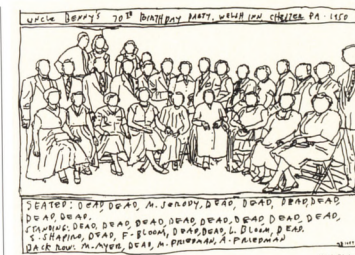 UNCLE BENNY'S 70TH BIRTHDAY PARTY, WELSH INN, CHESTER PA - 1950
SEATED: DEAD DEAD, M. SERODY, DEAD, DEAD, DEAD, DEAD,
DEAD, DEAD.
STANDING: DEAD, DEAD, DEAD, DEAD, DEAD, DEAD, DEAD, DEAD,
S. SHAPIRO, DEAD, F. BLOOM, DEAD, DEAD, L. BLOOM, DEAD.
BACK ROW: M. MYER, DEAD, M. FRIEDMAN, A. FRIEDMAN